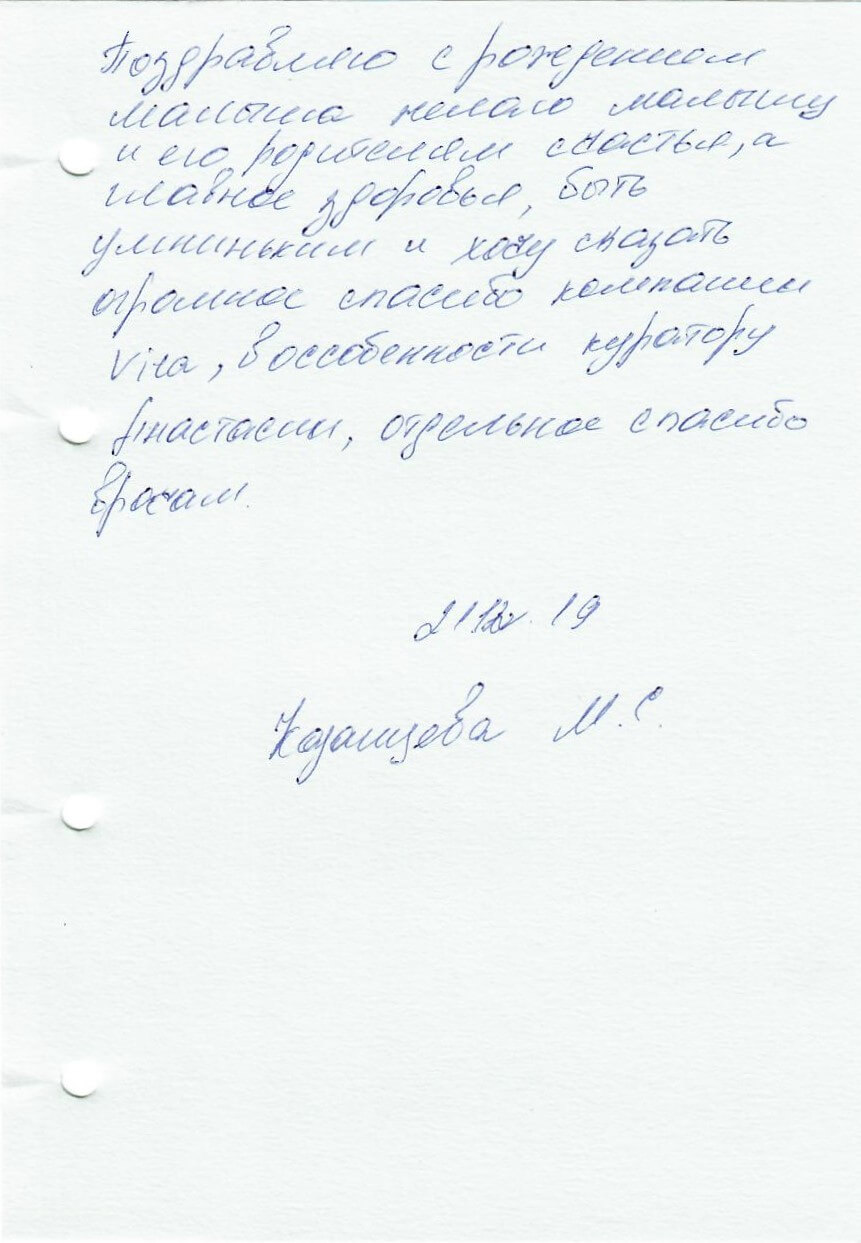 Поздравляю с рождением
малыша желаю малышу
и его родителям счастья, а
главное здоровья, быть
умниньким и хочу сказать
огромное спасибо компании
Vita, в оссобенности куратору
Анастасии, отдельное спасибо
врачам.
21.12.19
Казанцева М.С.